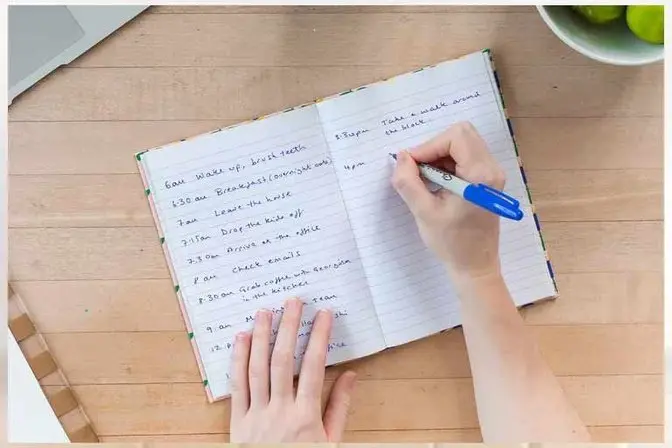 6am Wake up, brush teeth
6.30 am Breakfast (overnight oats)
7am Leave the house
7.15am Drop the kids off
7.30am Arrive at the office
8 am Check emails
8.30 am Grab coffee with Georgina
in the kitchen
9. am Team
12.
office
3.30pm Take a walk around
the block
4pm